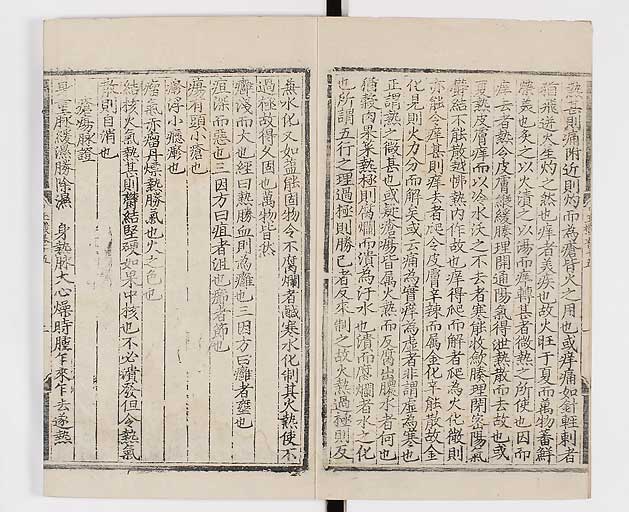 熱甚則痛附近則灼而為瘡皆火之用也或痒痛如針輕刺者
猶飛迸火星灼之然也痒者美疾也故火旺于夏而萬物蕃鮮
榮美也炙之以火漬之以湯而痒轉甚者微熱之所使也因而
痒去者熱令皮膚緩腠理開通陽氣得泄熱散而去故也或
夏熱皮膚痒而以冷水沃之不去者寒能收斂腠理閉密陽氣
鬱結不能散越怫熱內作故也痒得爬而解者爬為火化微則
亦能令痒甚則痒去者爬令皮膚辛辣而属金化辛能散故金
化見則火力分而解矣或云痛為實痒為虛者非謂虛為寒也
正謂熱之微甚也或疑瘡瘍皆属火熱而反腐出膿水者何也
猶穀肉果菜熱極則腐爛而潰為汙水也潰而腐爛者水之化
也所謂五行之理過極則勝己者反來制之故火熱過極則反
兼水化又如塩能固物令不腐爛者醎寒水化制其火熱使不
過極故得久固也萬物皆然
癰淺而大也經曰熱勝血則為癰也三因方曰癰者壅也
疽深而惡也三因方曰疽者沮也癤者節也
瘍有頭小瘡也
疹浮小癮疹也
瘤氣赤瘤丹熛熱勝氣也火之色也
結核火氣熱甚則鬱結堅硬如果中核也不必潰發但令熱氣
散則自消也
瘡瘍脉證
身熱脉大心燥時腫乍來乍去遂熱